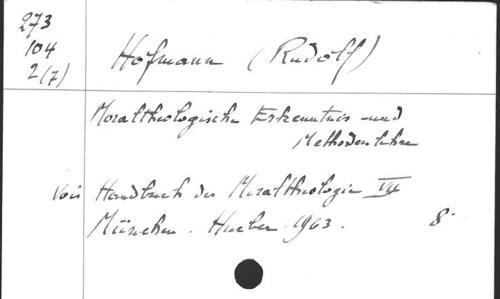 273
104
2(7)
Hofmann (Rudolf)
Moraltheologische Erkenntnis und
Methodenlehre
Voir Handbuch der Moraltheologie VII
München. Hueber 1963. 8°